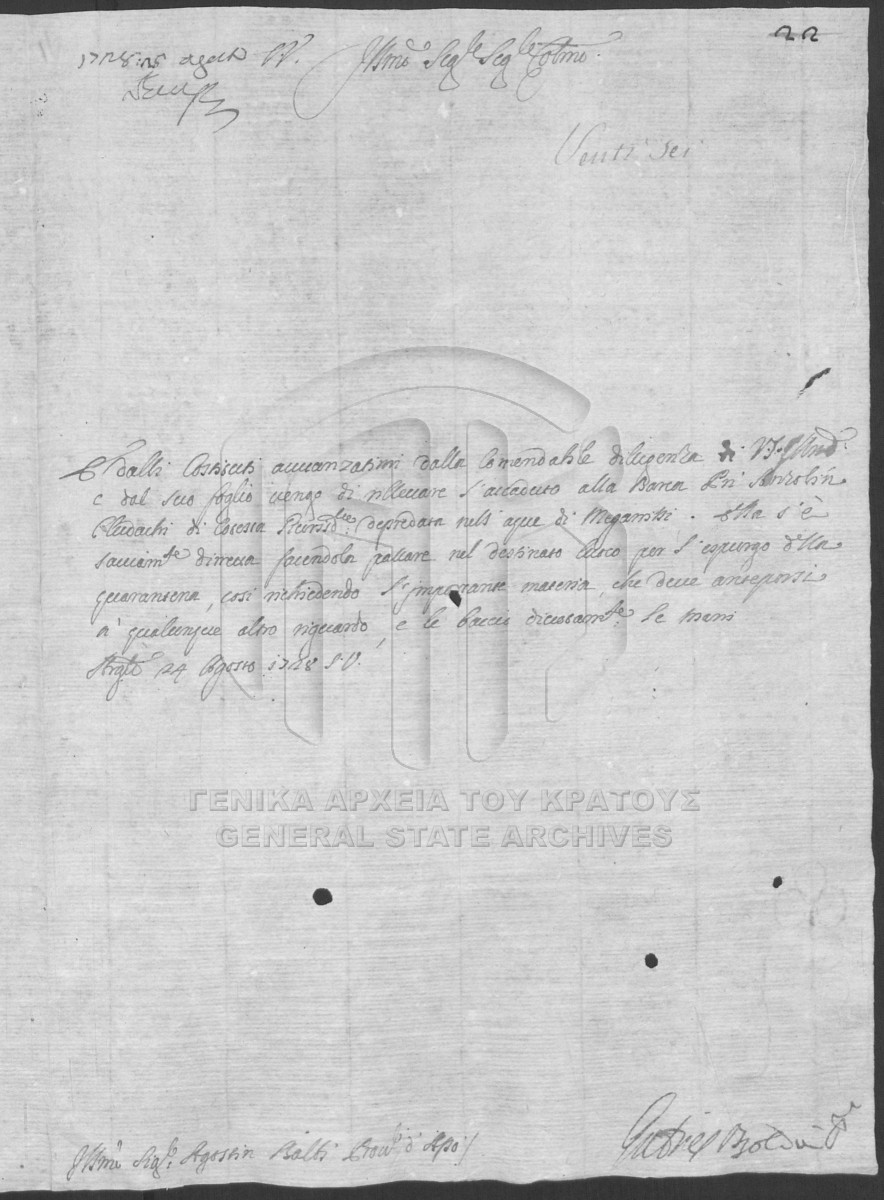 22
1728: 25 agosto
Illmo Sigr Sigr Colmo
Venti sei
Dalli Costituti avvanzatimi dalla Comendabile diligenza di VS. Illma
e dal suo foglio vengo di rillevare l'accaduto alla Barca Pn
di depredata nell'aque di Meganisi. Ella s'è
saviamte diressa facendola passare nel destinato luoco per l'espurgo della
quarantena, così richiedendo l'importante materia, che deve anteporsi
a' qualunque altro riguardo, e le baccio divotamte le mani
Argli 24 Agosto 1728 S.V.
Illmo Sigr Agostin Balbi Provr d'
Gabriel Boldù
ΓΕΝΙΚΑ ΑΡΧΕΙΑ ΤΟΥ ΚΡΑΤΟΥΣ
GENERAL STATE ARCHIVES